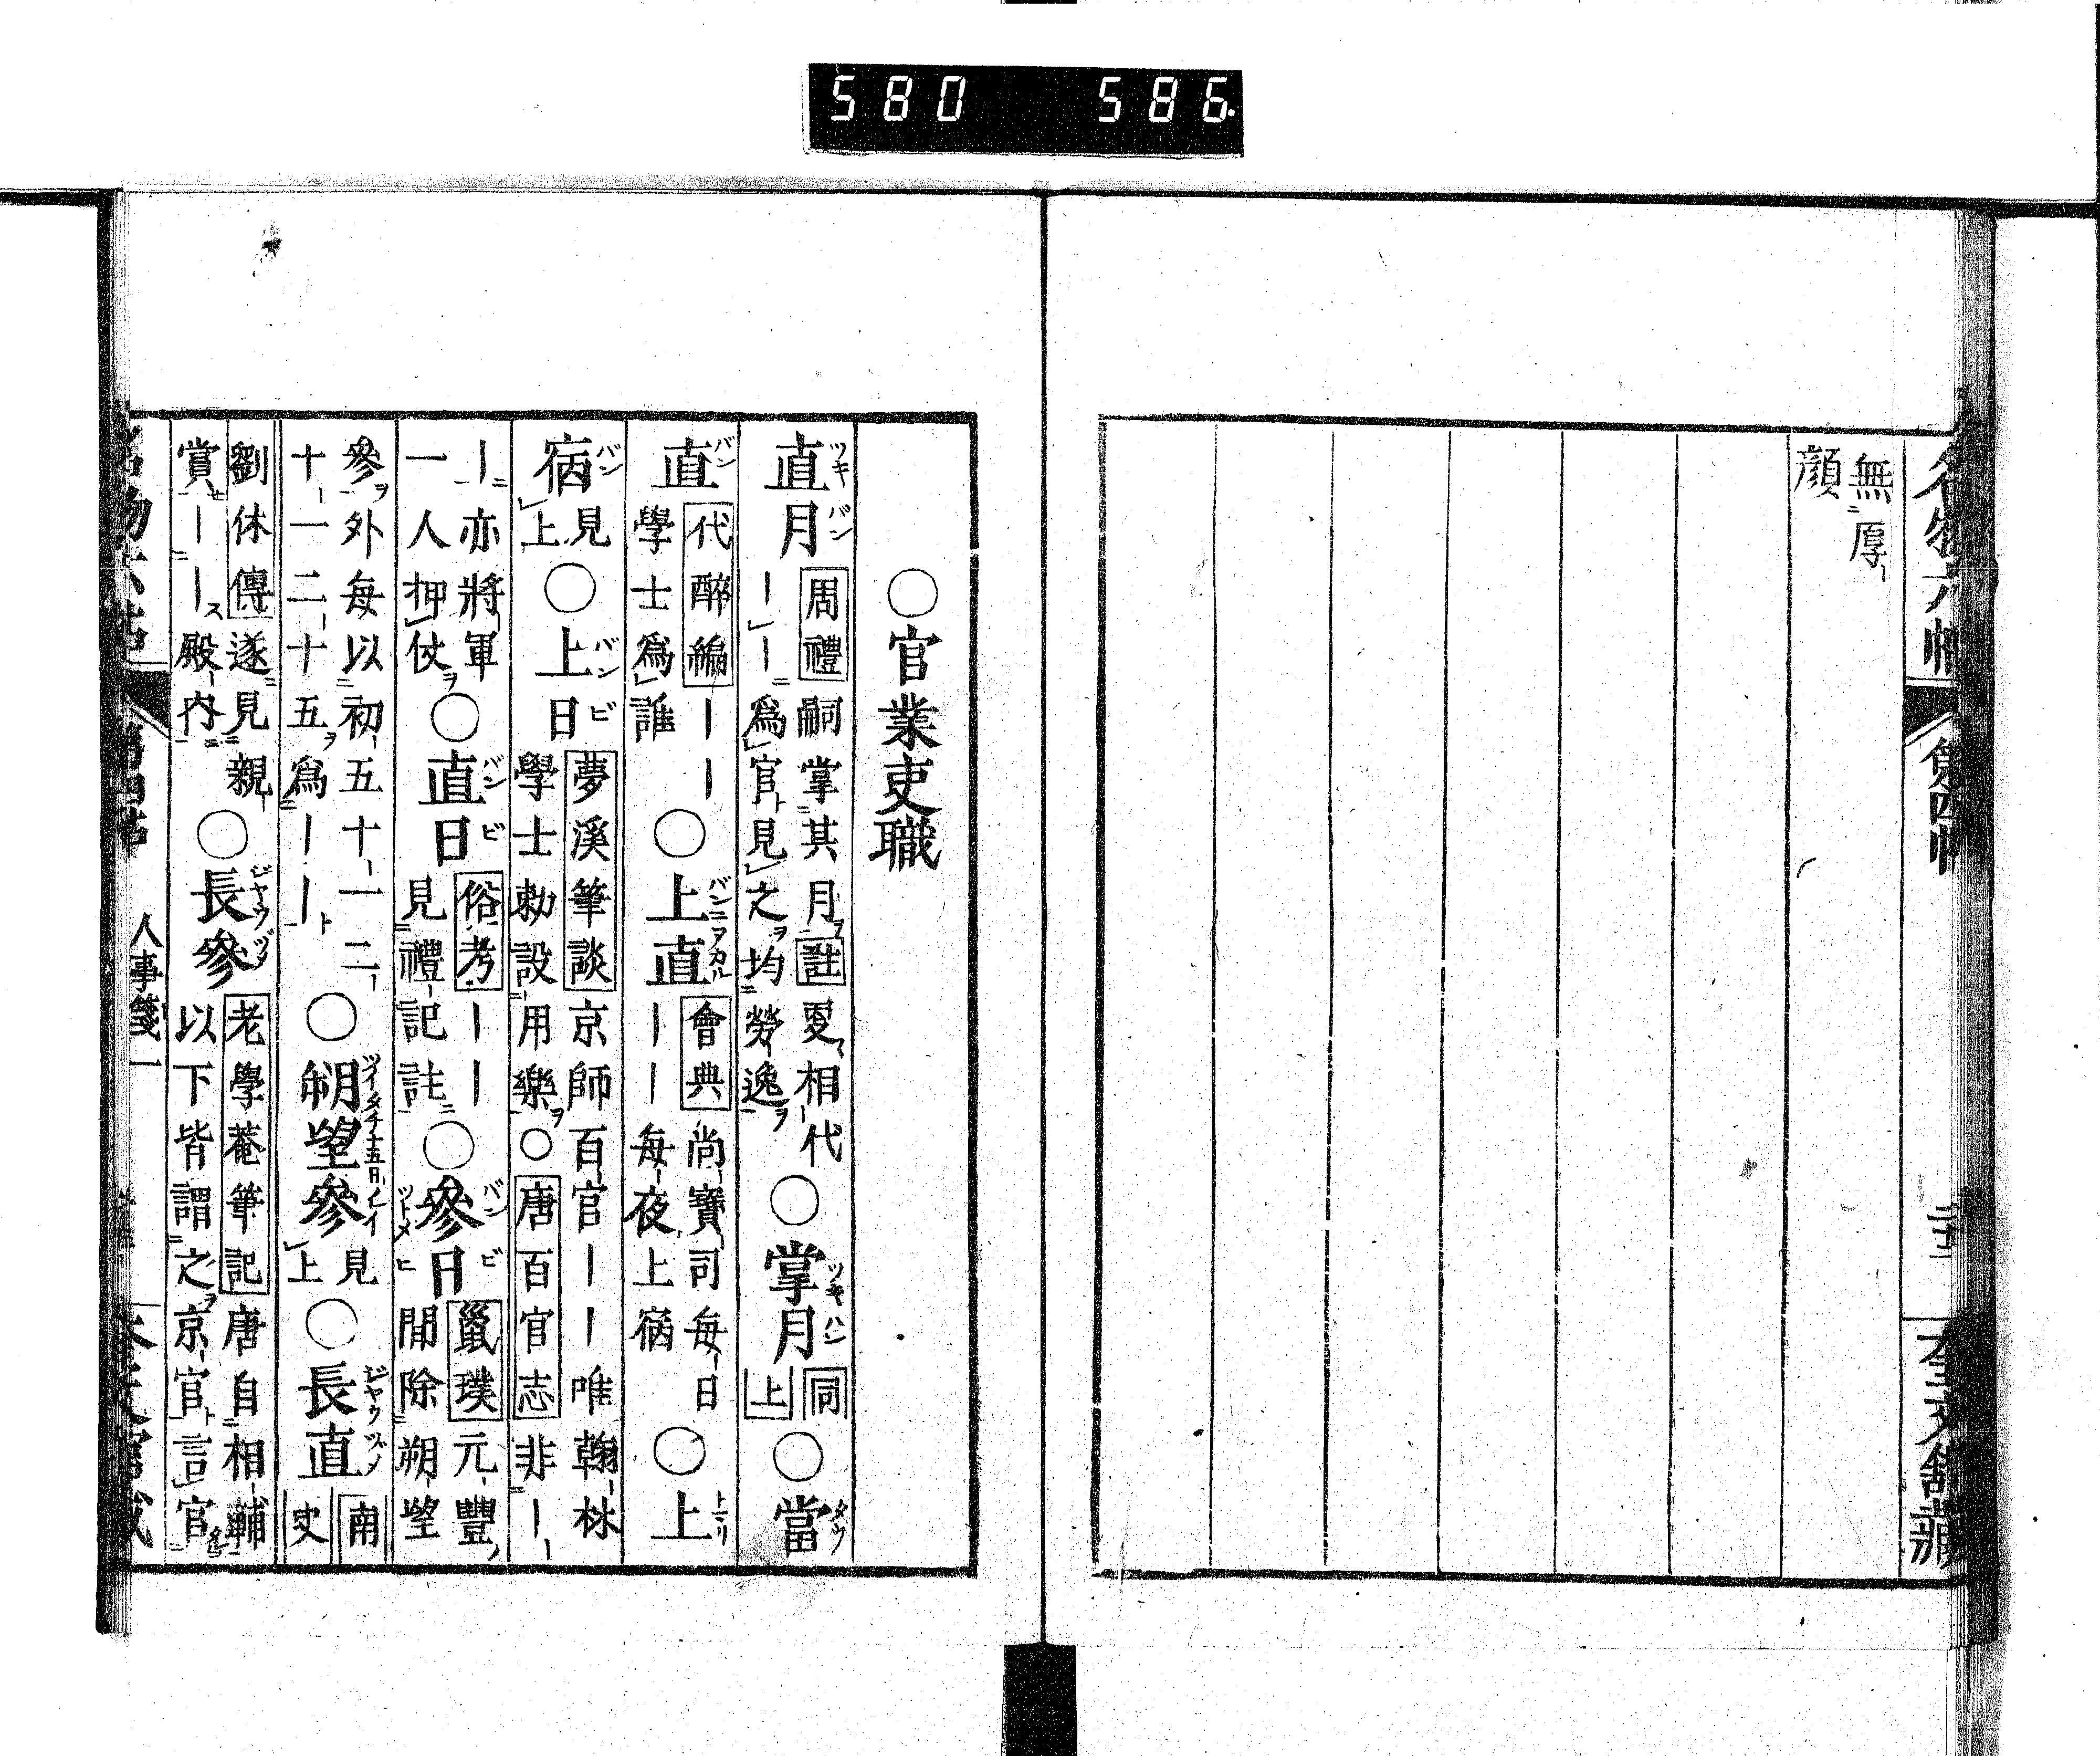 580 586.
無厚
顔
○官業吏職
直月 周禮 嗣掌其月 註 更相代
｜｜爲官見之均勞逸 ○掌月 同上 ○當
直 代醉編 ｜｜
學士爲誰 ○上直 會典 尚寶司每日
｜｜每夜上宿 ○上
宿 見上 ○上日 夢溪筆談 京師百官｜｜唯翰林
學士勅設用樂○ 唐百官志 非｜
｜亦將軍
一人押仗 ○直日 俗考 ｜｜
見禮記註 ○參日 蜑璞 元豐
間除朔望
參外每以初五十一二
十一二十五爲｜｜ ○朔望參 見上 ○長直 南史
劉休傳 遂見親
賞｜｜殿内 ○長參 老學菴筆記 唐自相輔
以下皆謂之京官言官
人事箋一